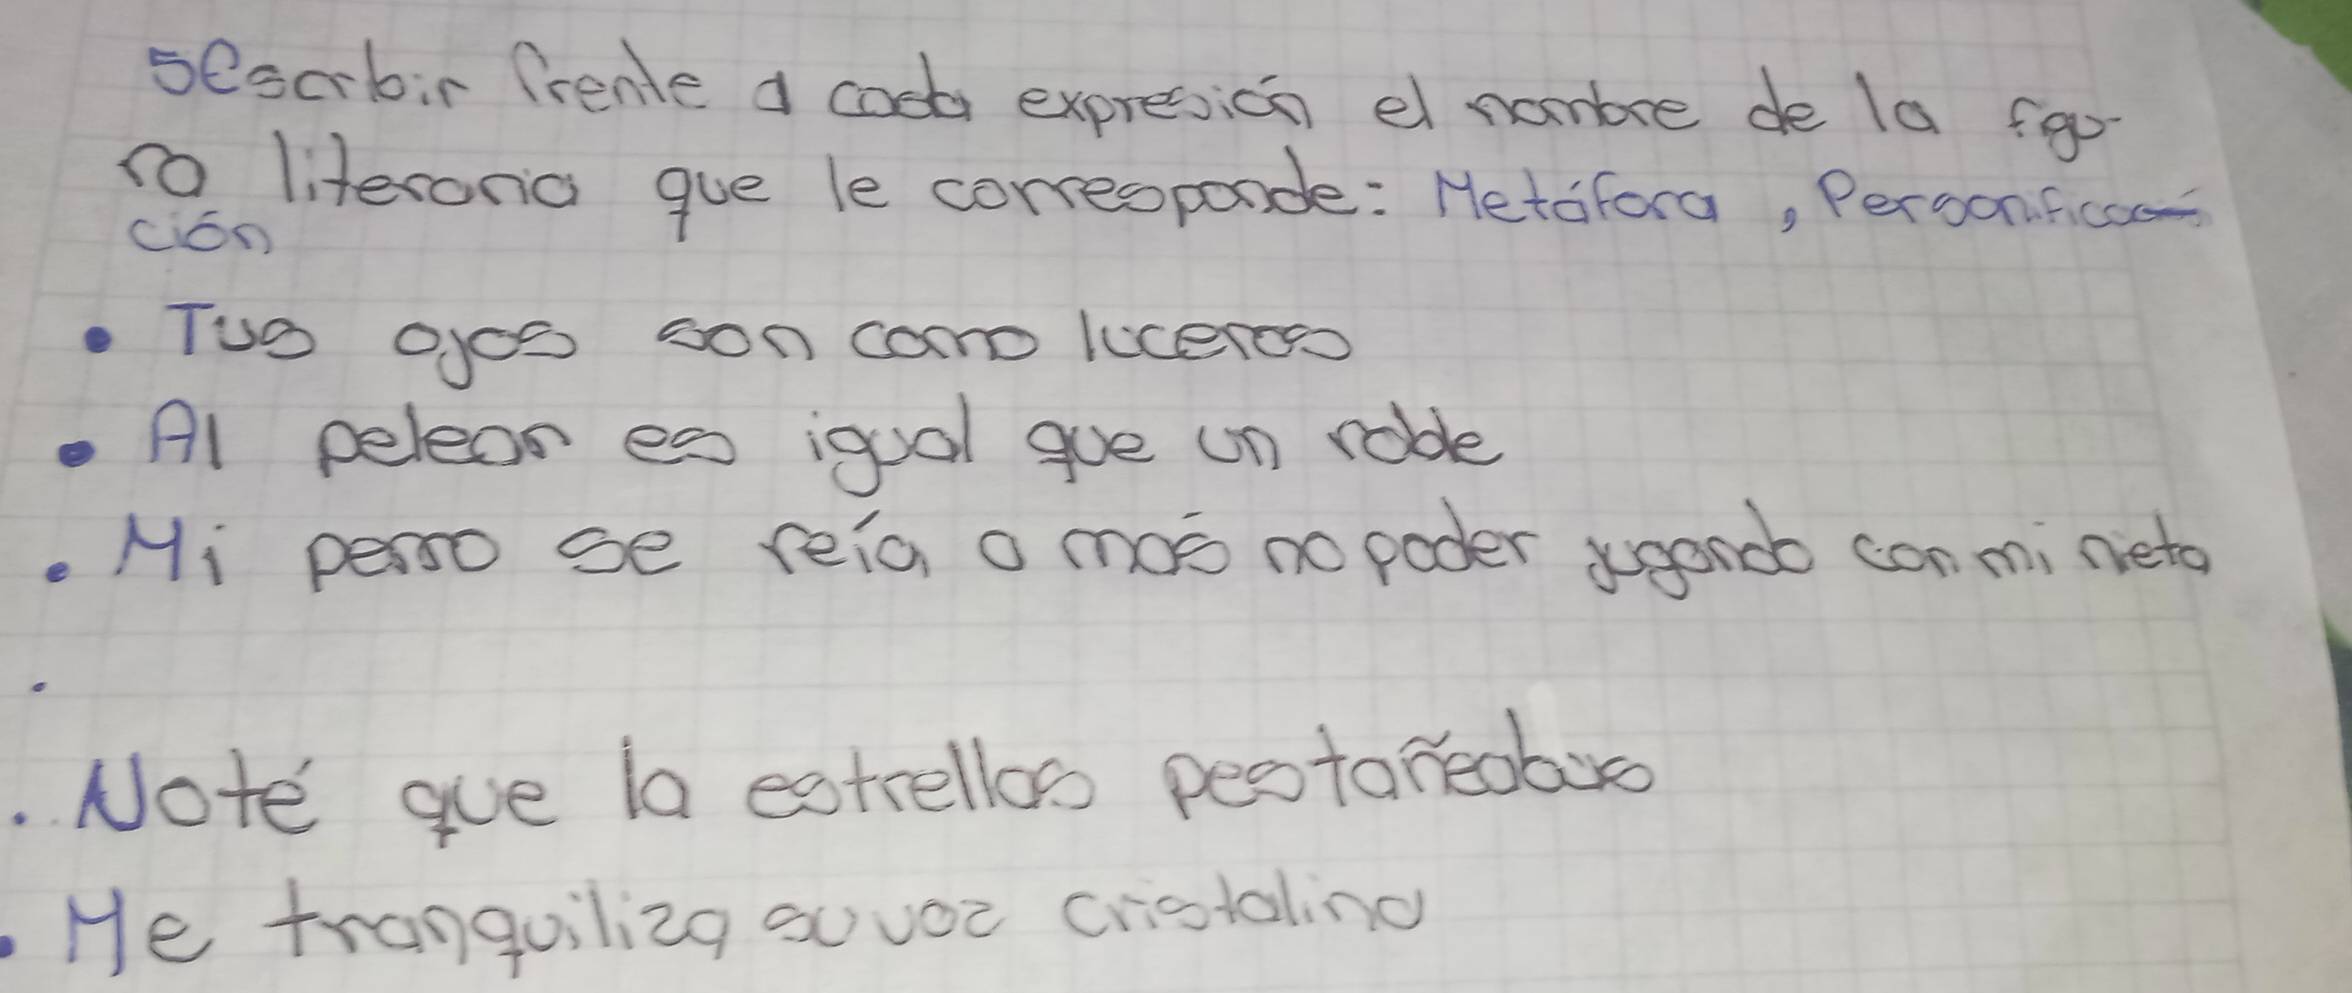 5Escrbir frente a cada expresión el nombre de la figu-
ra literaria que le corresponde: Metáfora, Personifica-
ción
• Tus ojos son como luceros
• Al pelear es igual que un roble
• Mi perro se reía a más no poder jugando con mi nieta
•
• Noté que la estrellas pestañeabas
• Me tranquiliza su voz cristalina